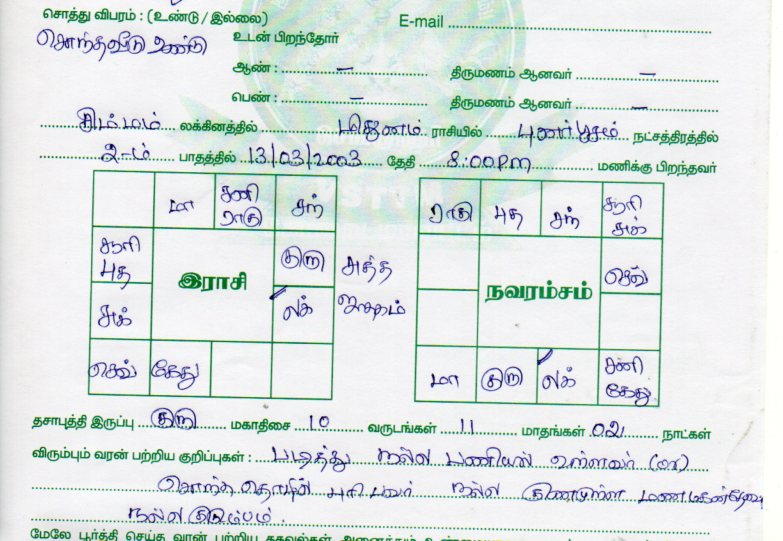 சொத்து விபரம் : (உண்டு / இல்லை) E-mail
சொந்தவீடு உண்டு உடன் பிறந்தோர்
ஆண் : — திருமணம் ஆனவர் —
பெண் : — திருமணம் ஆனவர் —
சிம்மம் லக்கினத்தில் மிதுனம் ராசியில் புனர்பூசம் நட்சத்திரத்தில்
2-ம் பாதத்தில் 13/03/2003 தேதி 8:00PM மணிக்கு பிறந்தவர்
மா சனி ராகு சந் ராகு புத சந் சூரி சுக்
சூரி புத குரு அதித செவ்
இராசி நவரம்சம்
சுக் லக்
செவ் கேது மா குரு லக் சனி கேது
தசாபுத்தி இருப்பு குரு மகாதிசை 10 வருடங்கள் 11 மாதங்கள் 02 நாட்கள்
விரும்பும் வரன் பற்றிய குறிப்புகள் : படித்து நல்ல பணியில் உள்ளவர் (or)
சொந்த தொழில் புரிபவர் நல்ல குணமுள்ள மணமகன் தேவை
நல்ல குடும்பம்.
மேலே பூர்த்தி செய்த வரன் பற்றிய தகவல்கள் அனைத்தும்